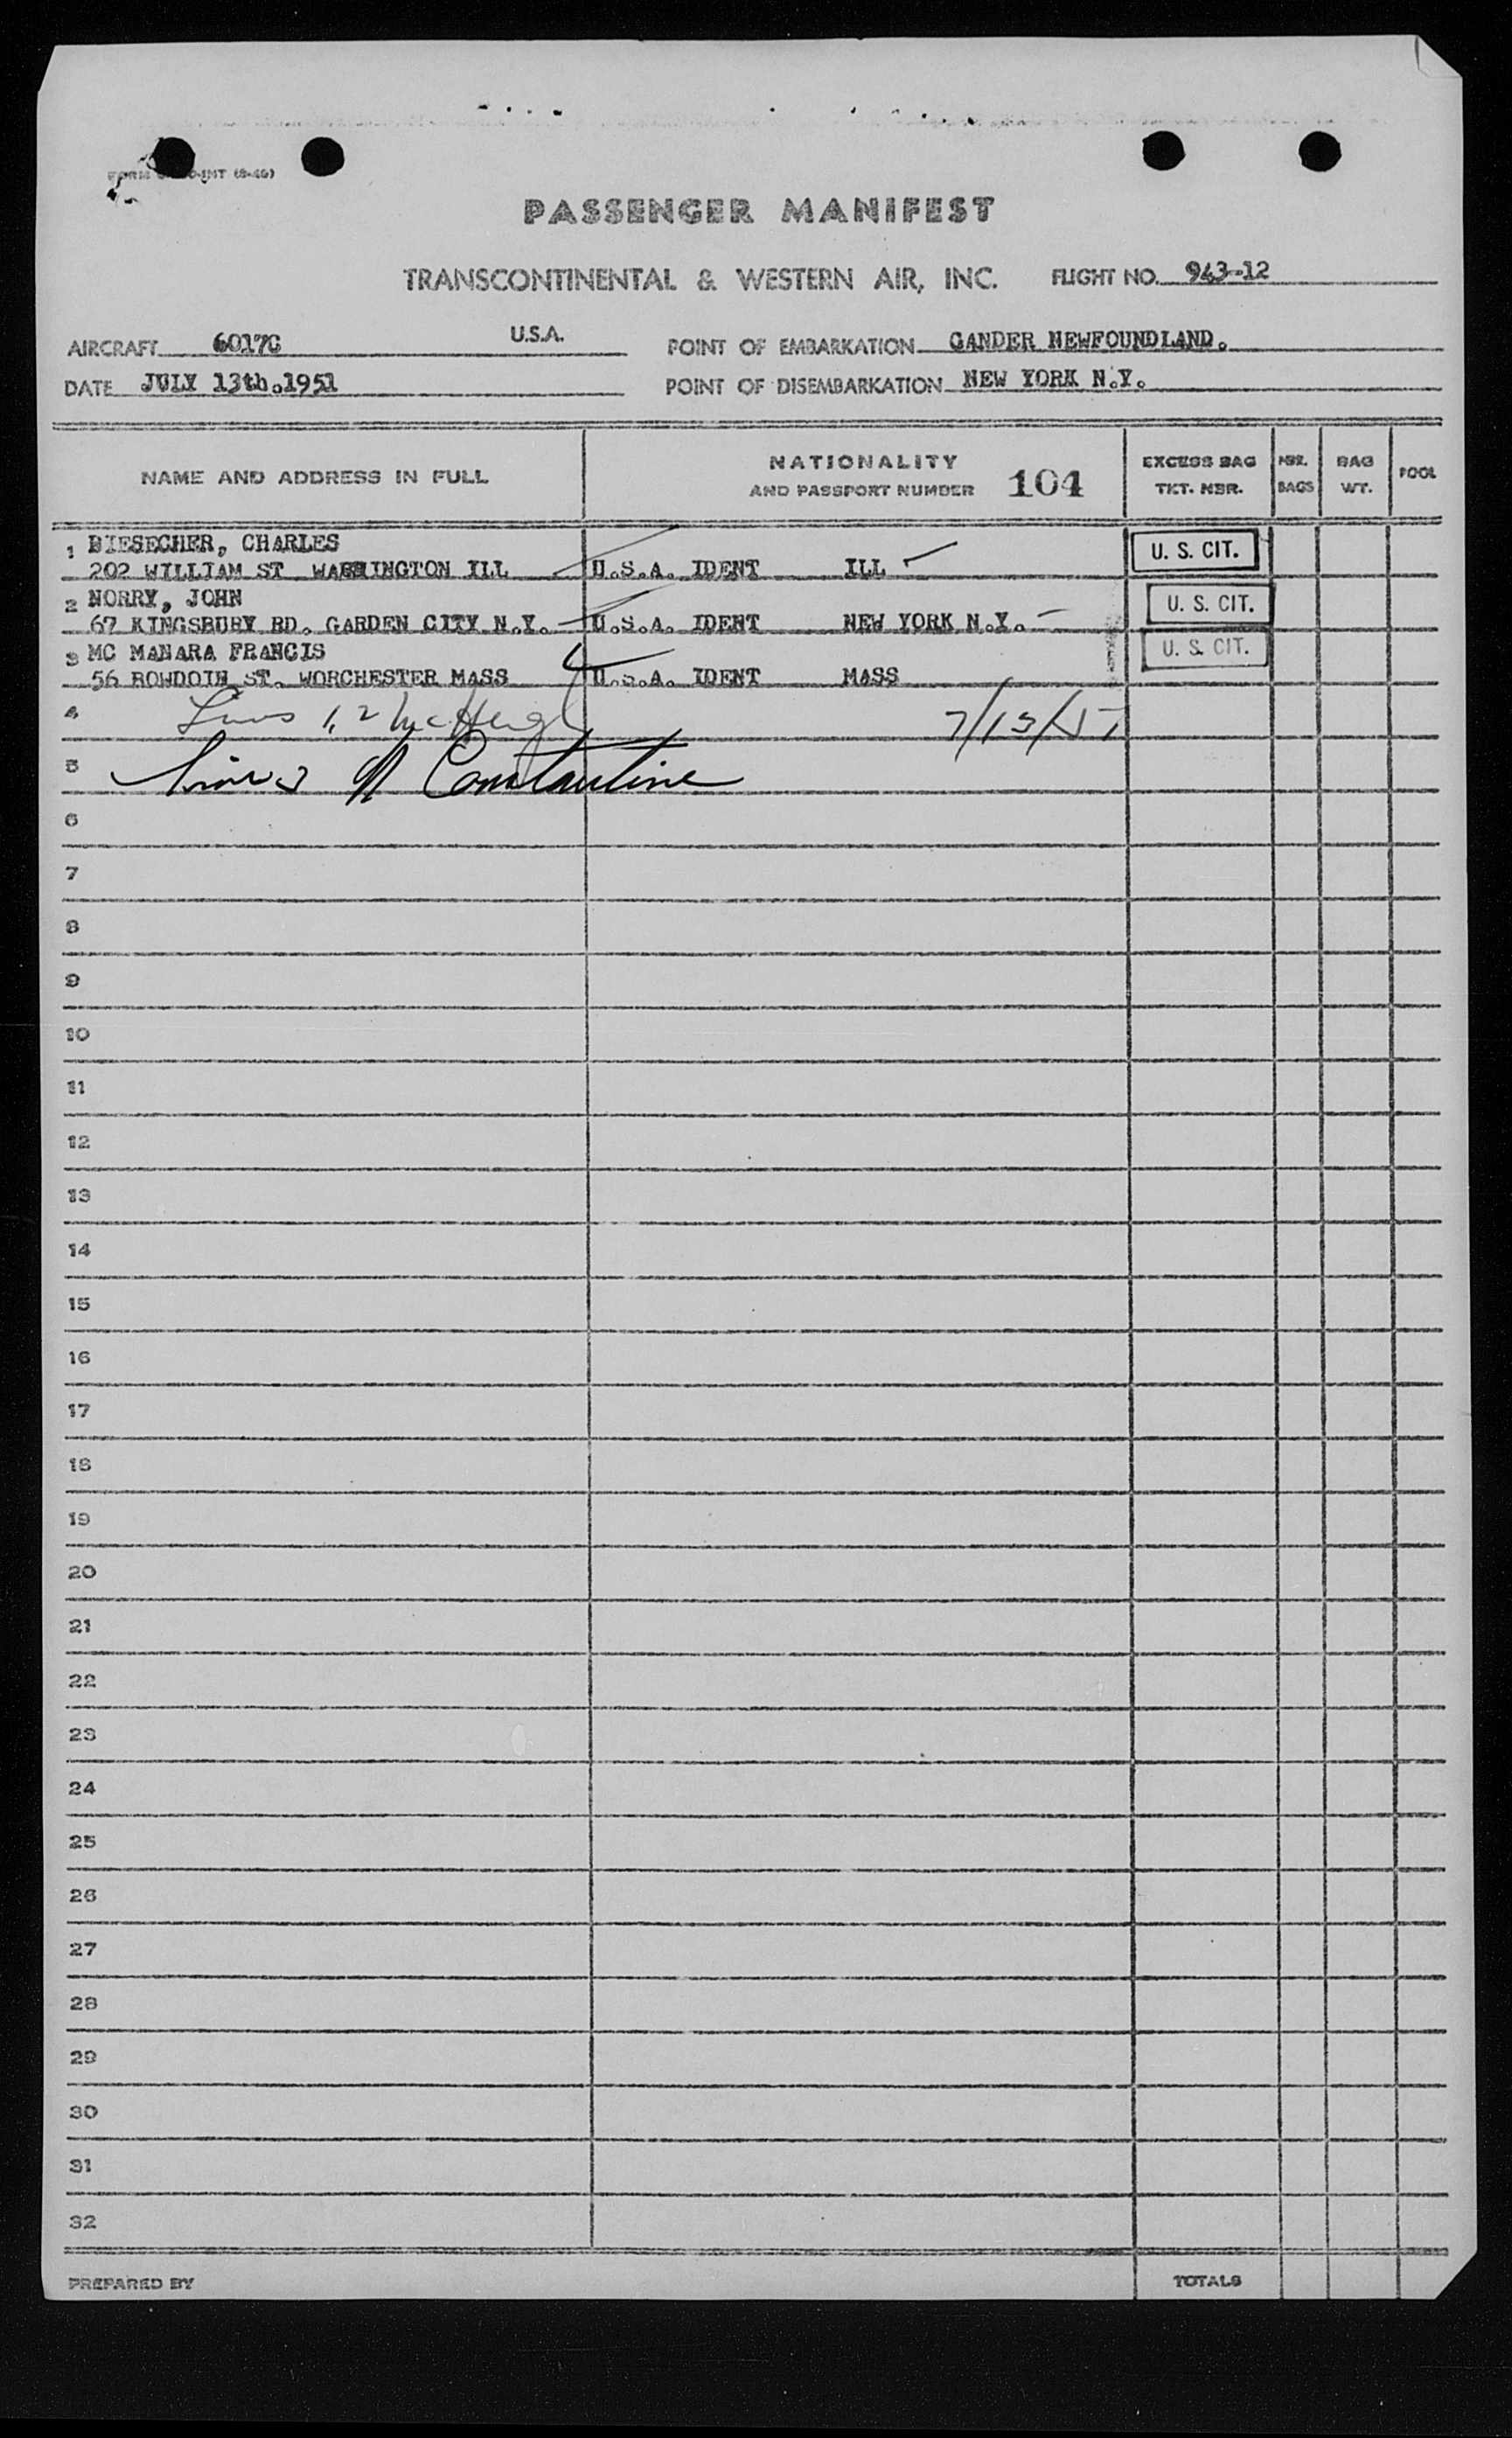 PASSENGER MANIFEST
TRANSCONTINENTAL & WESTERN AIR, INC. FLIGHT NO. 943-12
AIRCRAFT 6017C U.S.A. POINT OF EMBARKATION GANDER NEWFOUNDLAND.
DATE JULY 13th.1951 POINT OF DISEMBARKATION NEW YORK N.Y.
NAME AND ADDRESS IN FULL NATIONALITY AND PASSPORT NUMBER 104 EXCESS BAG TKT. NBR. NBR. BAGS BAG WT. POOL
1 BIESECHER, CHARLES
202 WILLIAM ST WASHINGTON ILL U.S.A. IDENT ILL U. S. CIT.
2 NORRY, JOHN
67 KINGSBURY RD. GARDEN CITY N.Y. U.S.A. IDENT NEW YORK N.Y. U. S. CIT.
3 MC MANARA FRANCIS U. S. CIT.
56 BOWDOIN ST. WORCHESTER MASS U.S.A. IDENT MASS
4 Lines 1, 2 7/13/51
5 Constantine
6
7
8
9
10
11
12
13
14
15
16
17
18
19
20
21
22
23
24
25
26
27
28
29
30
31
32
PREPARED BY TOTALS